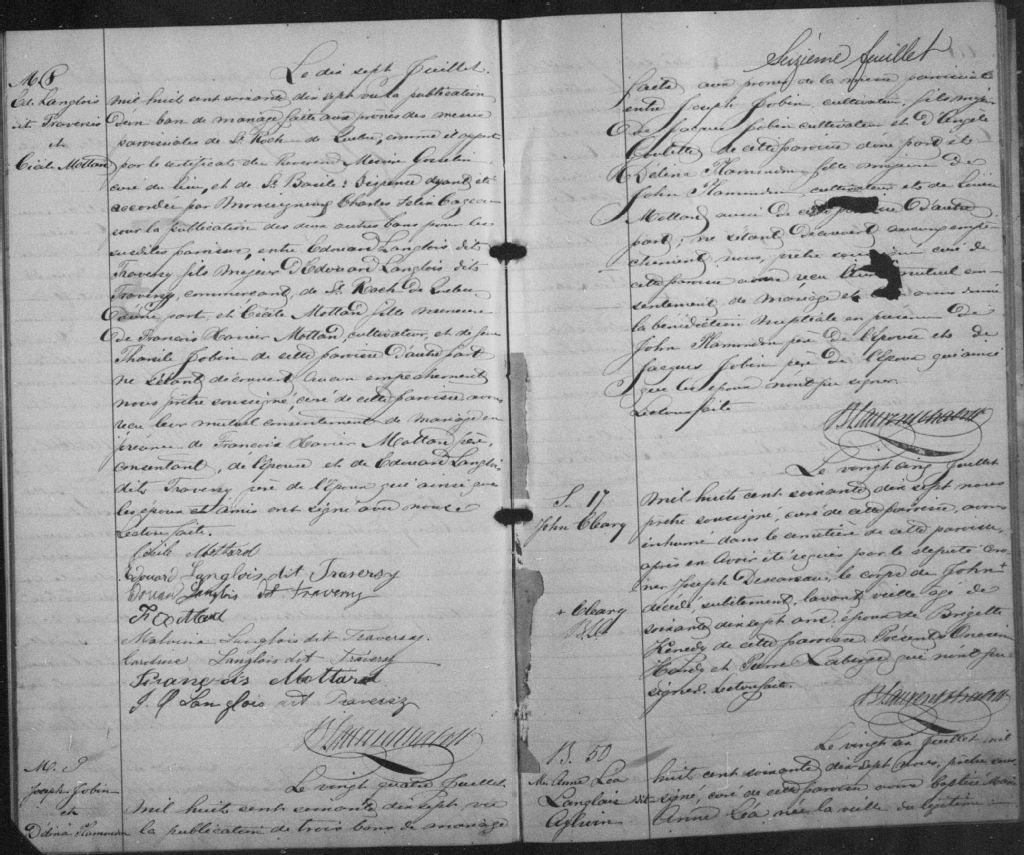 M. 8
Ed. Langlois
dit Traversi
et
Cécile Mottard
Le dix sept Juillet
mil huit cent soixante dix sept vu la publication
d'un ban de mariage faite aux prônes des messes
paroissiales de St. Roch de Québec, comme il appert
par le certificat du Révérend Messire Gosselin
curé du lieu, et de St. Basile; Dispense ayant été
accordée par Monseigneur Charles Félix Cazeau
sur la publication des deux autres bans pour les
susdites paroisses, entre Edouard Langlois dit
Traversy fils majeur d'Edouard Langlois dit
Traversy, commerçant, de St. Roch de Québec
d'une part, et Cécile Mottard fille mineure
de François Xavier Mottard, cultivateur, et de feue
Tharsile Jobin de cette paroisse d'autre part
ne s'étant découvert aucun empêchement
nous prêtre soussigné, curé de cette paroisse, avons
reçu leur mutuel consentement de mariage en
présence de François Xavier Mottard père,
consentant, de l'épouse et de Edouard Langlois
dit Traversy père de l'époux qui ainsi que
les époux et amis ont signé avec nous
Lecture faite.
Cécile Mottard
Edouard Langlois dit Traversy
Edouard Langlois dit Traversy
F. X. Mottard
Malvina Langlois dit Traversy.
Caroline Langlois dit Traversy
François Mottard
J. O Langlois dit Traversiz
M. 9
Joseph Jobin
et
Délina Hammdon
Le vingt quatre Juillet
mil huit cent soixante dix sept vu
la publication de trois bans de mariage
Seizième feuillet
faite aux prônes de la messe paroissiale
entre Joseph Jobin, cultivateur, fils majeur
de Jacques Jobin cultivateur et d'Angèle
de cette paroisse d'une part et
Délina fille majeure de
John cultivateur et de Louise
Mottard aussi de cette paroisse d'autre
part; ne s'étant découvert aucun empê-
chement, nous, prêtre soussigné curé de
cette paroisse avons reçu leur mutuel con-
sentement de mariage et avons donné
la bénédiction nuptiale en présence de
John père de l'épouse et de
Jacques Jobin père de l'époux qui ainsi
que les époux n'ont pu signer
Lecture faite
S. 17
John Cleary
+ Cleary
Le vingt cinq Juillet
mil huit cent soixante dix sept nous
prêtre soussigné, curé de cette paroisse, avons
inhumé dans le cimetière de cette paroisse,
après en avoir été requis par le député Coro-
ner Joseph Descareau, le corps de John +
décédé, subitement, l'avant veille âgé de
soixante dix sept ans, époux de Brigette
Kénedy de cette paroisse. Présents Onésime
Hardy et Pierre Laberge qui n'ont pu
signer. Lecture faite.
B. 50
M. Anne Léa
Langlois
Aylwin
Le vingt six Juillet mil
huit cent soixante dix sept nous, prêtre sous-
signé, curé de cette paroisse avons baptisé Marie
Anne Léa née la veille du légitime